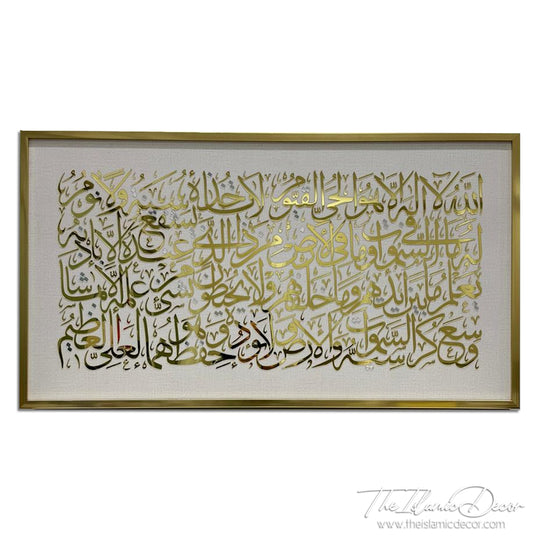 الله لا إله إلا هو الحي القيوم لا تأخذه سنة ولا نوم
له ما في السموات وما في الأرض من ذا الذي يشفع عنده إلا بإذنه
يعلم ما بين أيديهم وما خلفهم ولا يحيطون بشيء من علمه إلا بما شاء
وسع كرسيه السموات والأرض ولا يؤده حفظهما وهو العلي العظيم
The Islamic Decor
www.theislamicdecor.com